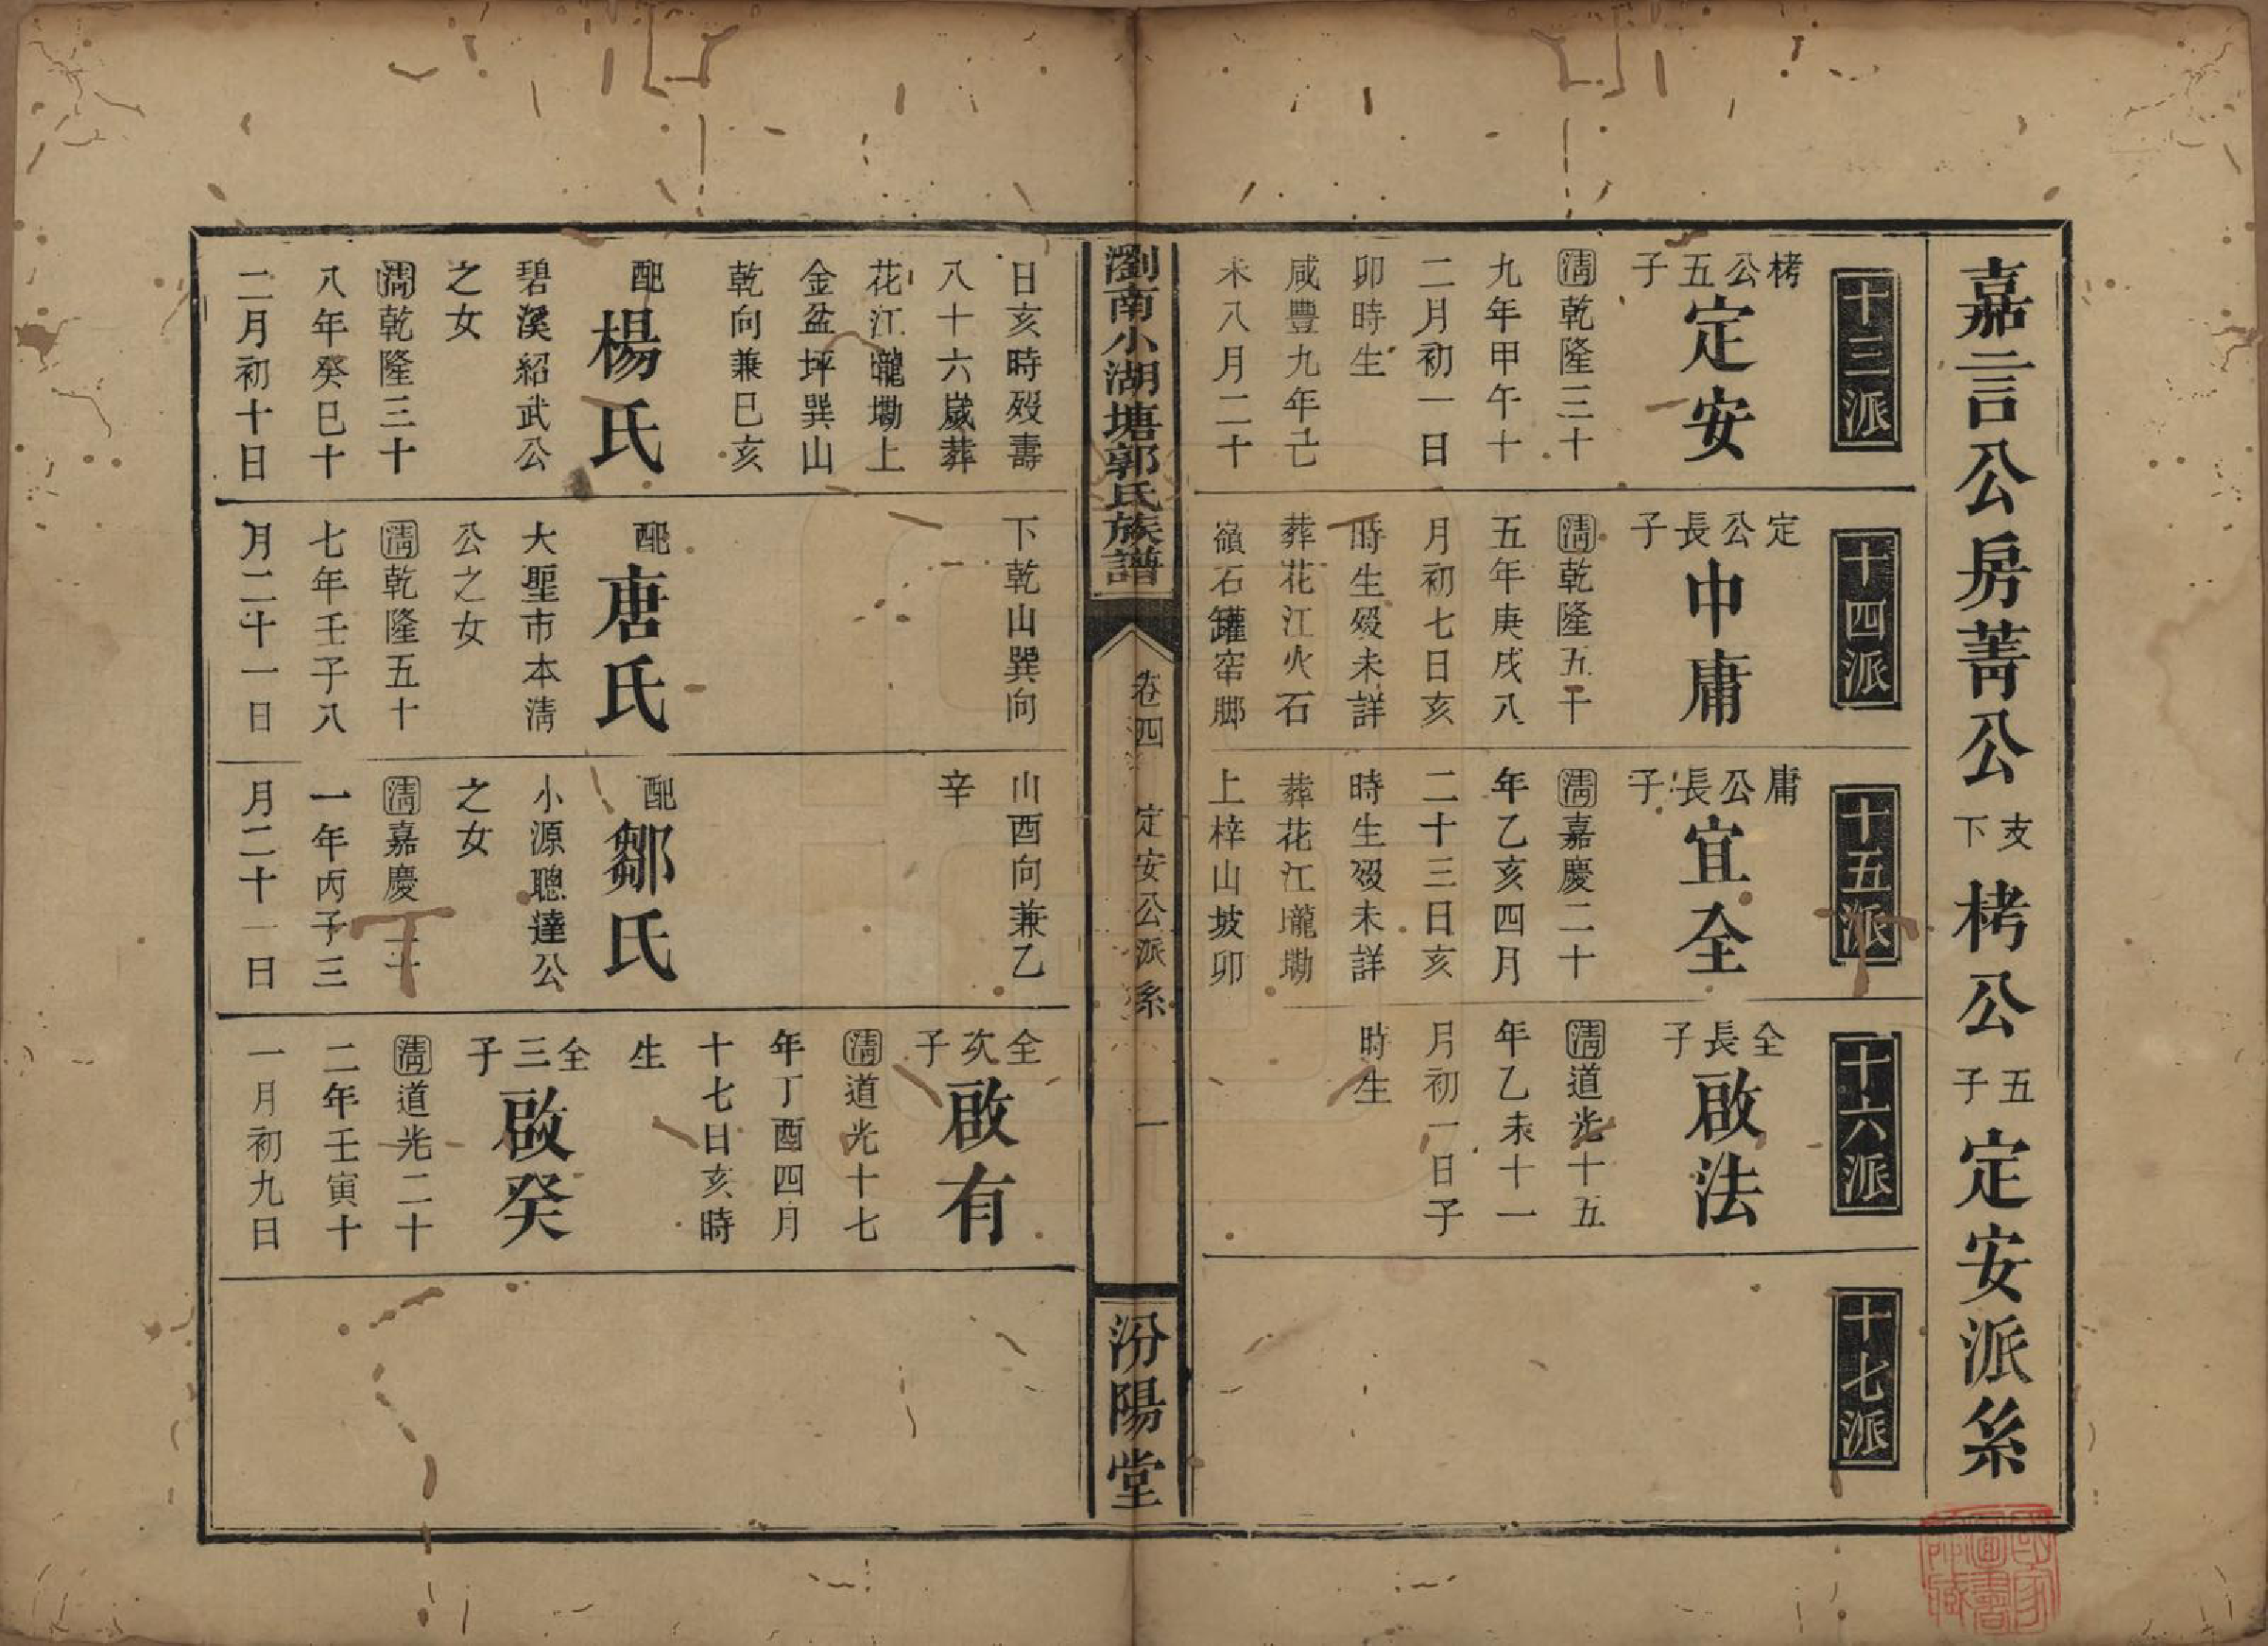 嘉言公房菁公支下栲公五子定安派系
十三派
栲公五子
定安
清乾隆三十
九年甲午十
二月初一日
卯時生
咸豐九年己
未八月二十
十四派
定公長子
中庸
清乾隆五十
五年庚戌八
月初七日亥
時生歿未詳
葬花江火石
嶺石罐窑脚
十五派
庸公長子
宜全
清嘉慶二十
年乙亥四月
二十三日亥
時生歿未詳
葬花江壠塝
上梓山坡卯
十六派
全長子
啟法
清道光十五
年乙未十一
月初一日子
時生
十七派
瀏南小湖塘郭氏族譜
卷四
定安公派系
一
汾陽堂
日亥時歿壽
八十六嵗葬
花江壠塝上
金盆坪巽山
乾向兼巳亥
配楊氏
碧溪紹武公
之女
清乾隆三十
八年癸巳十
二月初十日
下乾山巽向
配唐氏
大聖市本清
公之女
清乾隆五十
七年壬子八
月二十一日
山酉向兼乙
辛
配鄒氏
小源聰達公
之女
清嘉慶二十
一年丙子三
月二十一日
全次子
啟有
清道光十七
年丁酉四月
十七日亥時
生
全三子
啟癸
清道光二十
二年壬寅十
一月初九日
國家圖書館藏